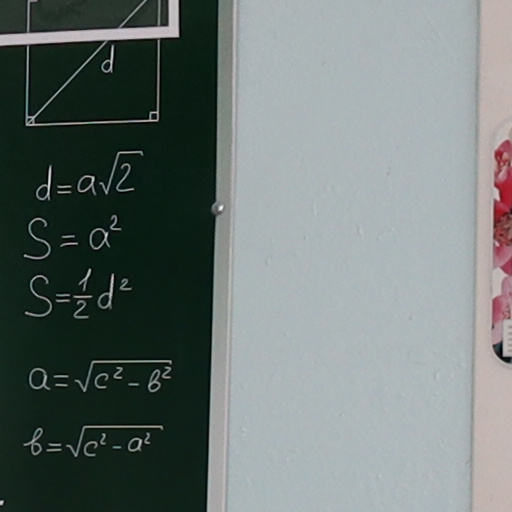 d
d = a√2
S = a²
S = 1/2 d²
a = √c² - b²
b = √c² - a²